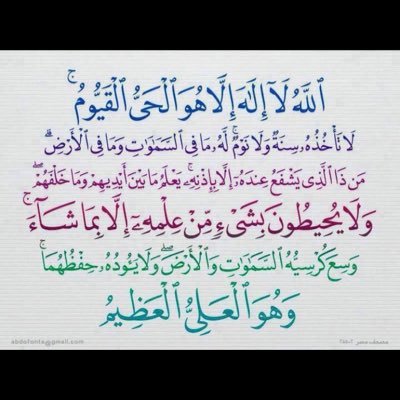 ٱللَّهُ لَآ إِلَٰهَ إِلَّا هُوَ ٱلْحَىُّ ٱلْقَيُّومُ ۚ
لَا تَأْخُذُهُۥ سِنَةٌ وَلَا نَوْمٌ ۚ لَّهُۥ مَا فِى ٱلسَّمَٰوَٰتِ وَمَا فِى ٱلْأَرْضِ ۗ
مَن ذَا ٱلَّذِى يَشْفَعُ عِندَهُۥٓ إِلَّا بِإِذْنِهِۦ ۚ يَعْلَمُ مَا بَيْنَ أَيْدِيهِمْ وَمَا خَلْفَهُمْ ۖ
وَلَا يُحِيطُونَ بِشَىْءٍ مِّنْ عِلْمِهِۦٓ إِلَّا بِمَا شَآءَ ۚ
وَسِعَ كُرْسِيُّهُ ٱلسَّمَٰوَٰتِ وَٱلْأَرْضَ ۖ وَلَا يَـُٔودُهُۥ حِفْظُهُمَا ۚ
وَهُوَ ٱلْعَلِىُّ ٱلْعَظِيمُ
abdofonts@gmail.com